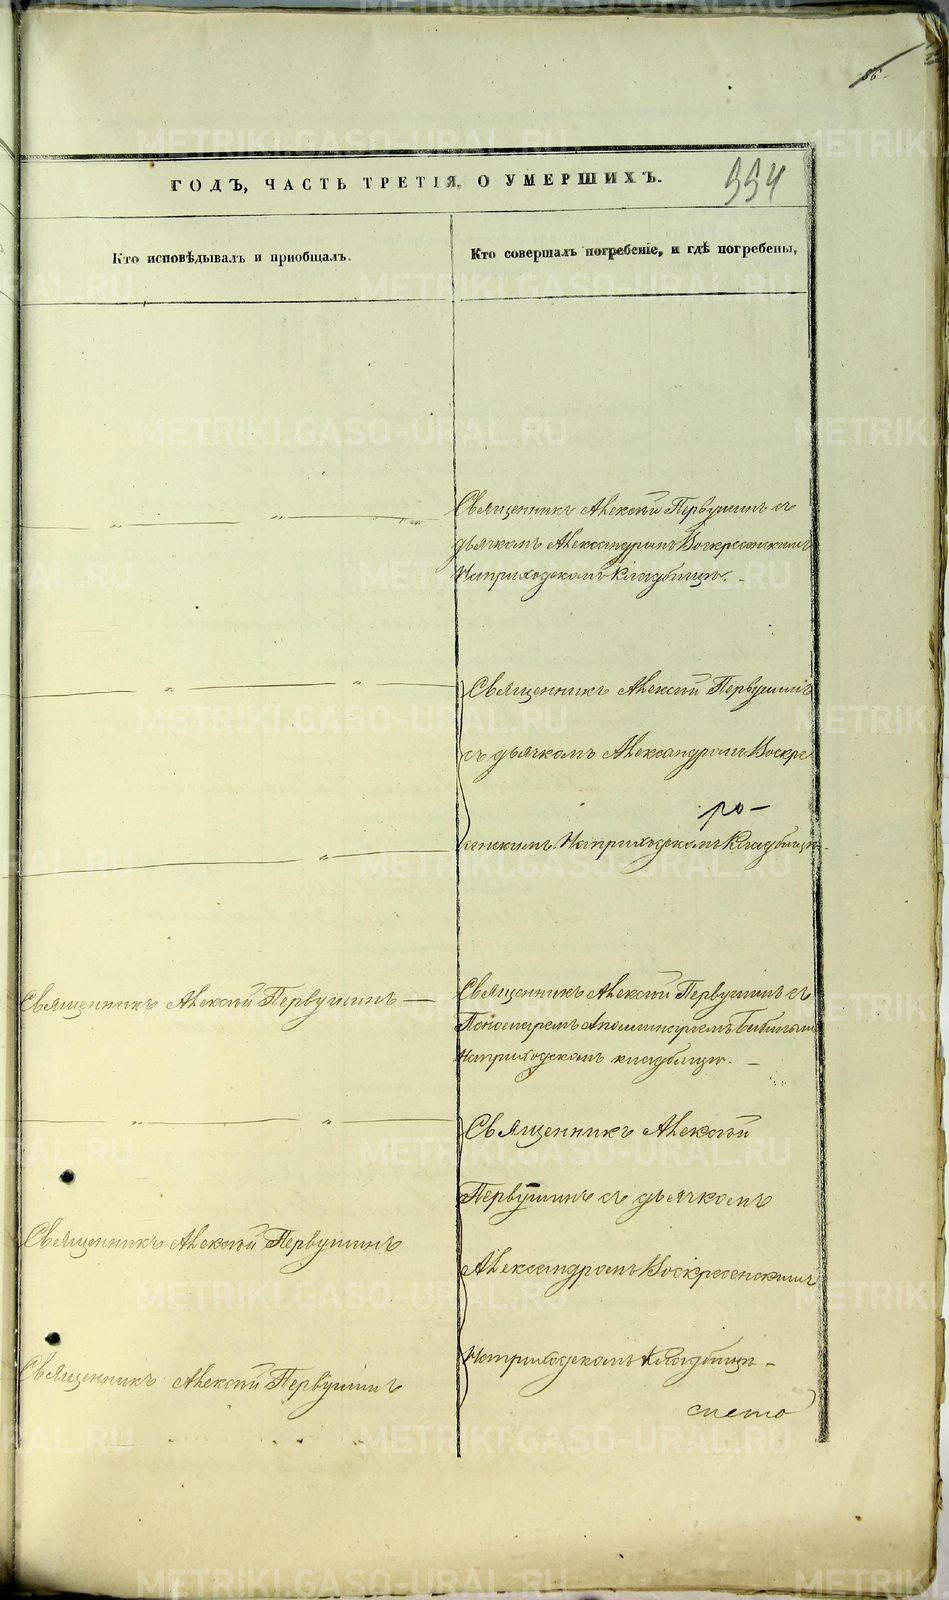 56
ГОДЪ, ЧАСТЬ ТРЕТІЯ, О УМЕРШИХЪ.
334
Кто исповѣдывалъ и пріобщалъ.
Кто совершалъ погребеніе, и гдѣ погребены,
Священникъ Алексѣй Первушинъ съ
дьячкомъ Александромъ Воскресенскимъ
На приходскомъ кладбищѣ.
Священникъ Алексѣй Первушинъ
съ дьячкомъ Александромъ Воскре
сенскимъ На приходскомъ Кладбищѣ
Священникъ Алексѣй Первушинъ
Священникъ Алексѣй Первушинъ съ
Пономаремъ Аполлинаріемъ
На приходскомъ кладбищѣ.
Священникъ Алексѣй
Первушинъ съ дьячкомъ
Священникъ Алексѣй Первушинъ
Александромъ Воскресенскимъ
На приходскомъ кладбищѣ
Священникъ Алексѣй Первушинъ
METRIKI.GASO-URAL.RU